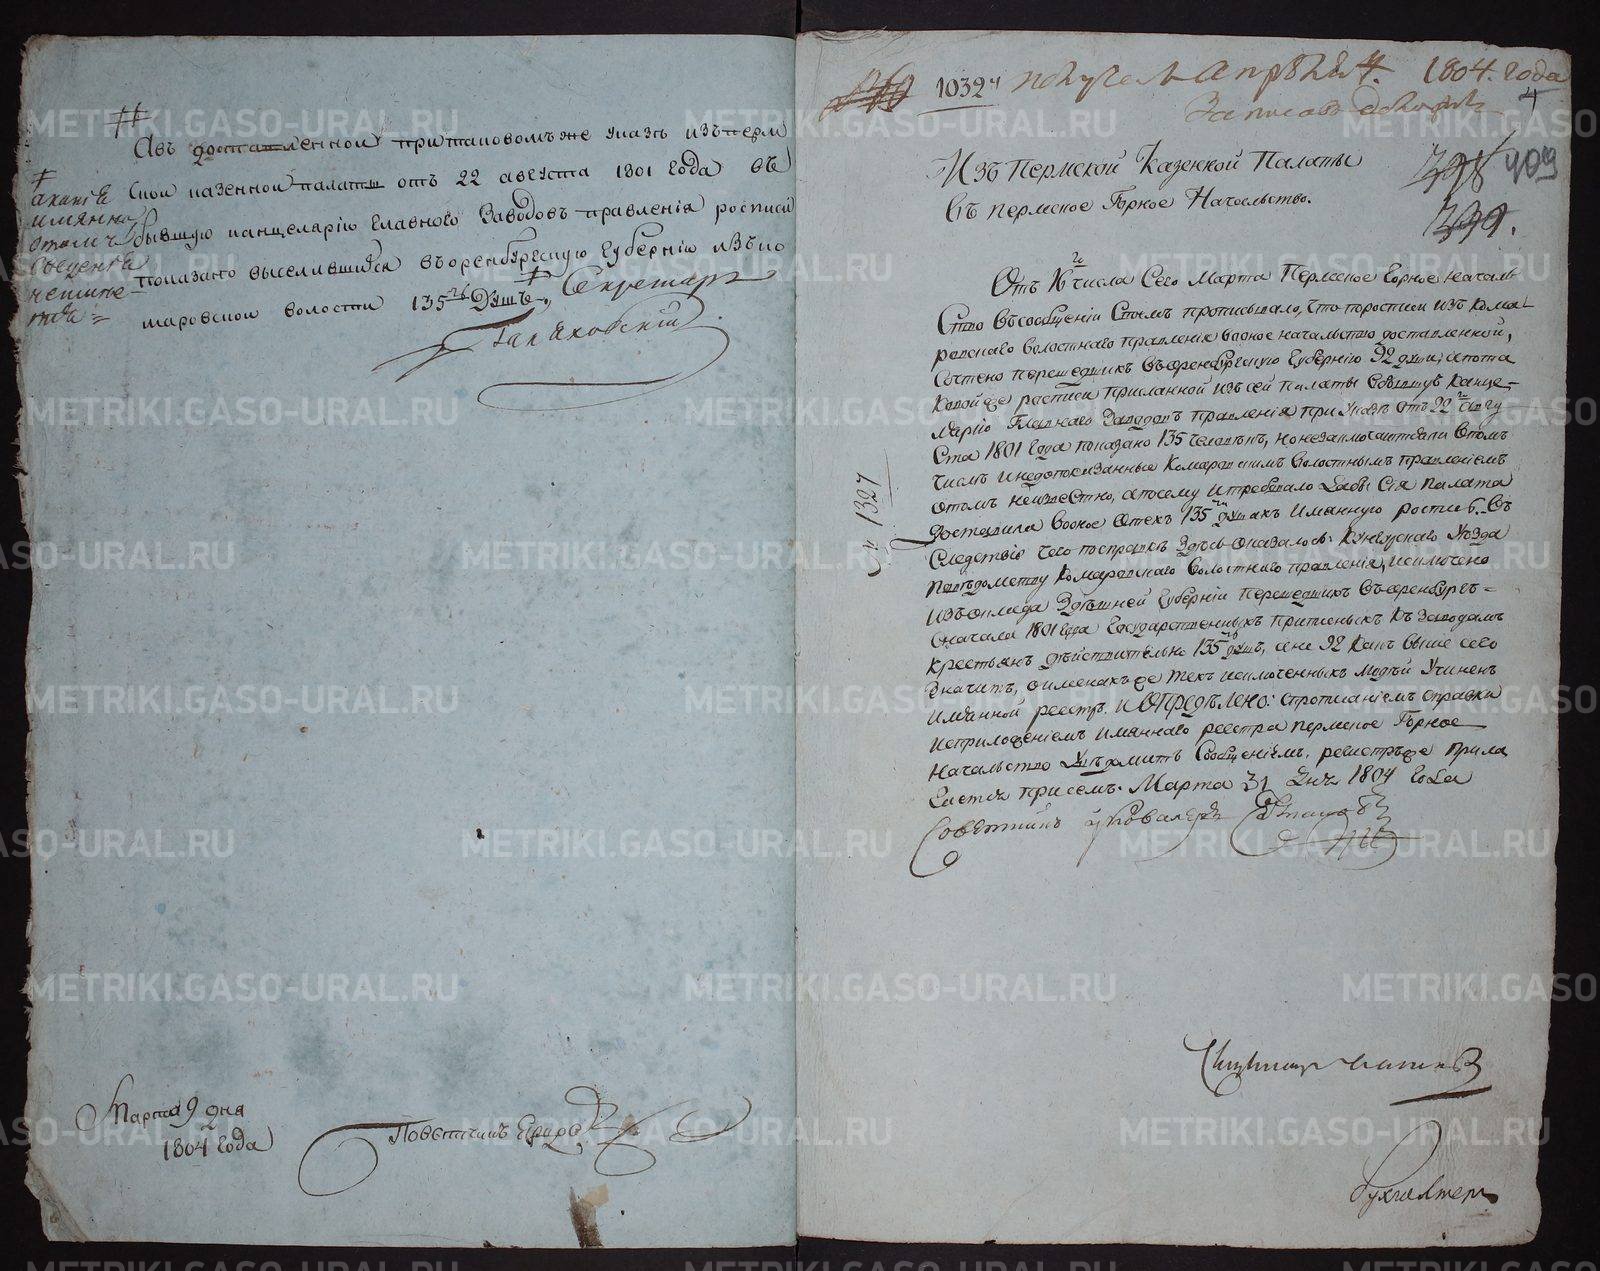 Авъ доставленной притаковомъ же указѣ изъ перм
ской казенной палаты отъ 22 августа 1801 года въ
бывшую канцелярію главного Заводовъ правленія росписи
показано выселившихся въ оренбургскую губернію изъ ко
маровской волости 135 душъ, Секретарь
имянно
Марта 9 дня
1804 года
Повѣтчикъ
1032
получена апрѣля 4. 1804. года
Записавъ доложить
4
398 409
399.
Изъ Пермской Казенной Палаты
Въ пермское Горное Начальство.
№ 1327
Отъ 16 числа Сего Марта Пермское Горное началь
ство въ сообщеніи Своемъ прописывало, что поросписи изъ Кома
ровскаго волостнаго правленія во оное начальство доставленной,
сочтено перешедшихъ въ оренбургскую Губернію 92 души, а по та
ковой же росписи присланной изъ сей палаты въ бывшую канце
лярію Главнаго Заводовъ правленія при Указѣ отъ 22 Авгу
ста 1801 года показано 135 человѣкъ, но незаключаютсяли втомъ
числѣ и недопоказанные Комаровскимъ волостнымъ правленіемъ
отомъ неизвестно, а посему и требовало дабы Сія палата
доставила во оное отехъ 135 душахъ имянную роспись. Въ
следствіе чего посправкѣ здѣсь оказалось: Кунгурскаго Уѣзда
повѣдомству Комаровскаго волостнаго правленія, исключено
изъ оклада здѣшней Губерніи перешедшихъ въ оренбургъ
сначала 1801 года Государственныхъ приписныхъ къ заводамъ
крестьянъ дѣйствительно 135 душъ, а не 92 какъ выше сего
значитъ, о именахъ же тѣхъ исключенныхъ людей учиненъ
имянной реестръ. и Опредѣлено: спрописаніемъ справки
исприложеніемъ имяннаго реестра пермское Горное
Начальство увѣдомить сообщеніемъ, реестръ же прила
гается присемъ. Марта 31 дня 1804 года
Совѣтникъ и кавалеръ
Бухгалтеръ